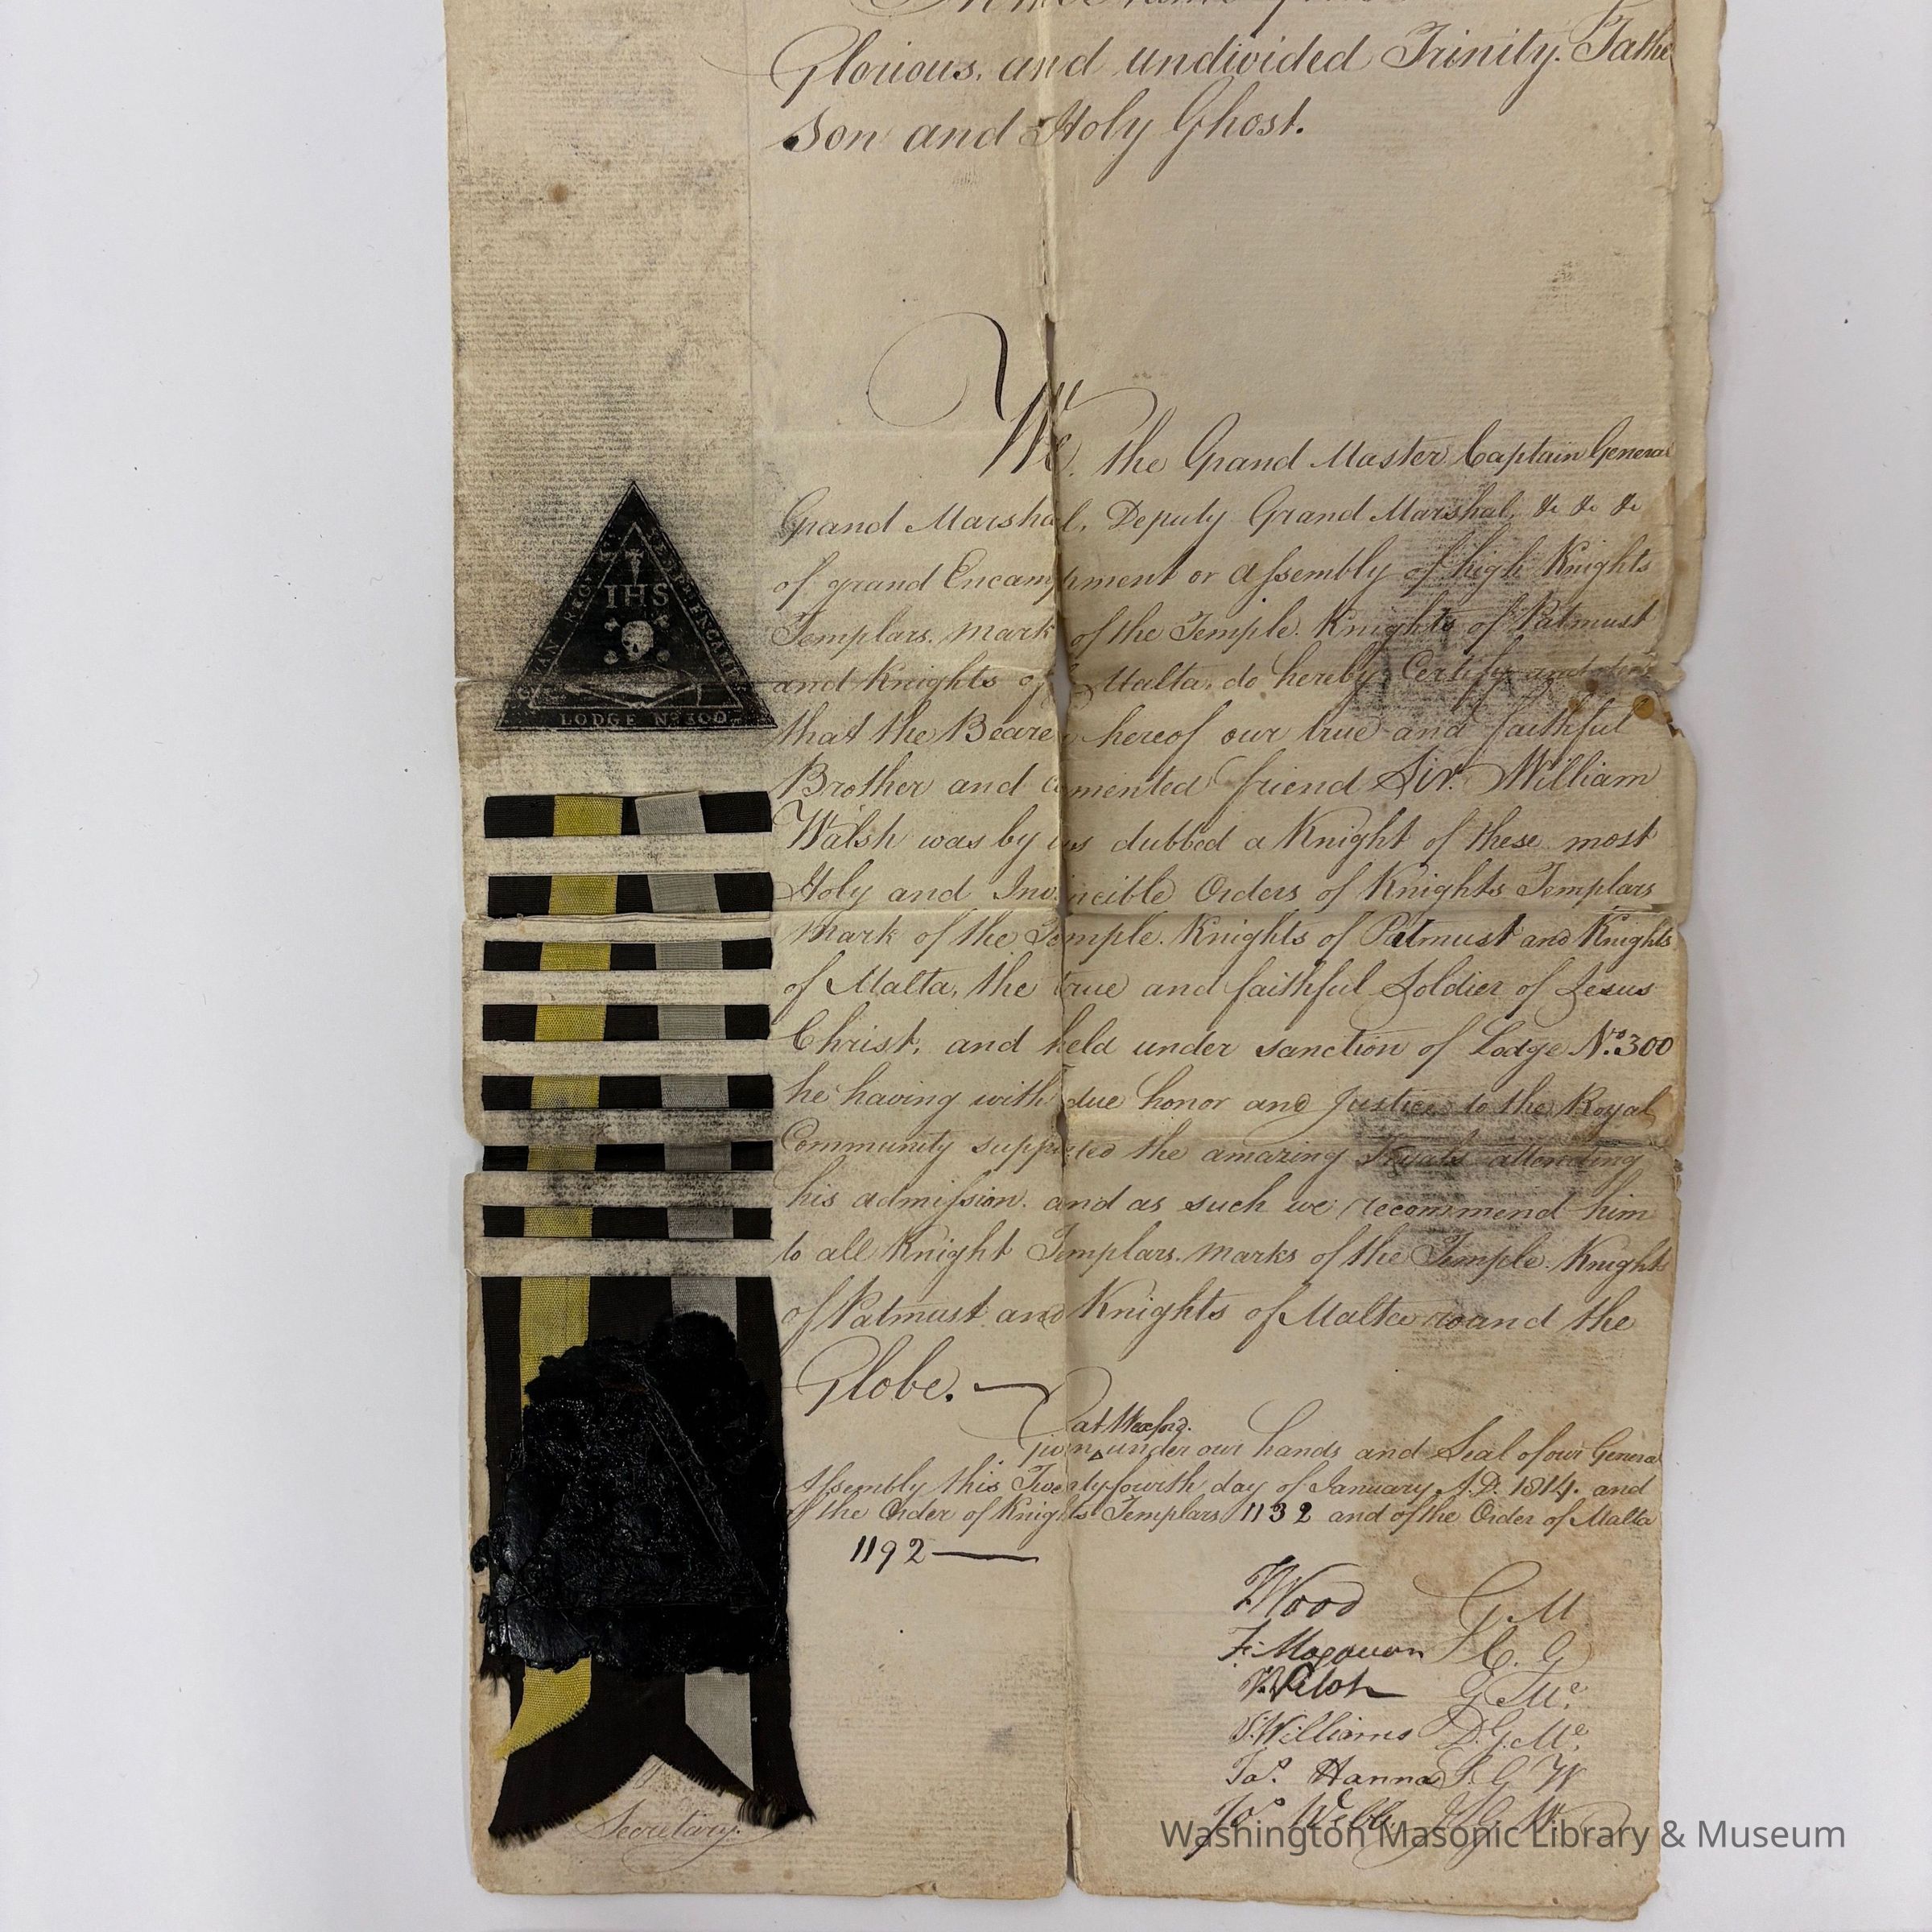 Glorious, and undivided Trinity. Fathe
Son and Holy Ghost.
We, the Grand Master Captain General
Grand Marshal, Deputy Grand Marshal, &c &c &c
of grand Encampment or assembly of high Knights
Templars, mark of the Temple. Knights of Patmust
and Knights of Malta, do hereby Certify and
that the Bearer hereof our true and faithful
Brother and cemented friend Sir. William
Walsh was by us dubbed a Knight of these most
Holy and Invincible Orders of Knights Templars
Mark of the Temple. Knights of Patmust and Knights
of Malta, the true and faithful Soldier of Jesus
Christ, and held under sanction of Lodge No. 300
he having with due honor and Justice to the Royal
Community supported the amazing Tryals attending
his admission, and as such we recommend him
to all Knight Templars, marks of the Temple. Knights
of Patmust and Knights of Malta round the
Globe.
at Wexford.
Given under our hands and Seal of our General
Assembly this Twentyfourth day of January A.D. 1814. and
of the Order of Knights Templars 1132 and of the Order of Malta
1192
Wood G. M.
C. G.
G. Me.
Williams D. G. Me.
Jas. Hanna S. G. W
Webb G. W.
IHS
LODGE No 300
Secretary.
Washington Masonic Library & Museum